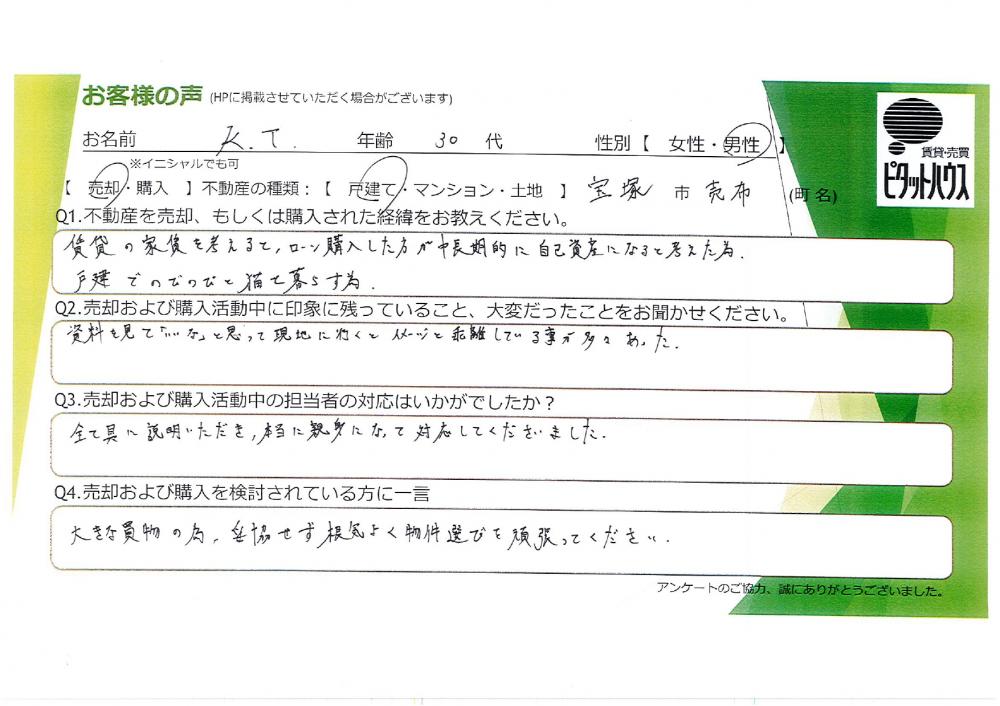 お客様の声 (HPに掲載させていただく場合がございます)
お名前 K.T. 年齢 30 代 性別【 女性・男性 】
※イニシャルでも可
【 売却・購入 】不動産の種類：【 戸建て・マンション・土地 】 宝塚 市 売布 (町名)
賃貸・売買
ピタットハウス
Q1.不動産を売却、もしくは購入された経緯をお教えください。
賃貸の家賃を考えると,ローン購入した方が中長期的に自己資産になると考えた為.
戸建でのびのびと猫と暮らす為.
Q2.売却および購入活動中に印象に残っていること、大変だったことをお聞かせください。
資料を見て「いいな」と思って現地に行くとイメージと乖離している事が多々あった.
Q3.売却および購入活動中の担当者の対応はいかがでしたか？
全て具に説明いただき,本当に親身になって対応してくださいました.
Q4.売却および購入を検討されている方に一言
大きな買物の為,妥協せず根気よく物件選びを頑張ってください.
アンケートのご協力、誠にありがとうございました。